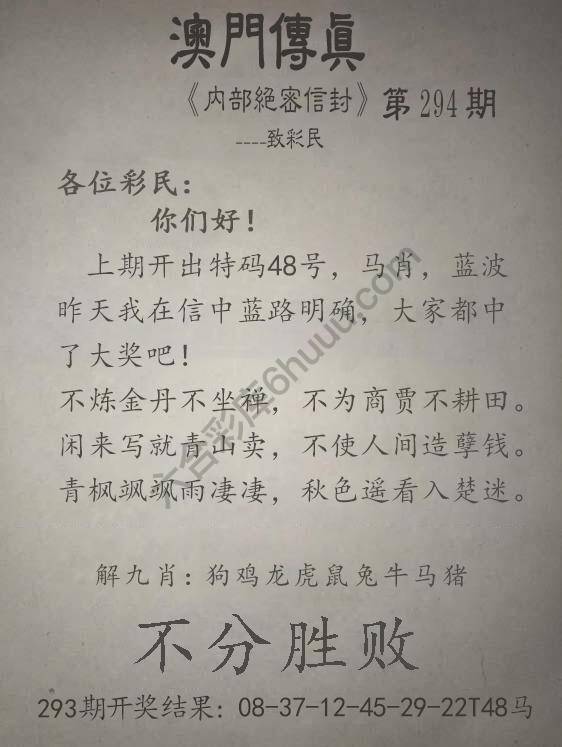 澳門傳眞
《内部絕密信封》第294期
----致彩民
各位彩民：
你们好！
上期开出特码48号，马肖，蓝波
昨天我在信中蓝路明确，大家都中
了大奖吧！
不炼金丹不坐禅，不为商贾不耕田。
闲来写就青山卖，不使人间造孽钱。
青枫飒飒雨凄凄，秋色遥看入楚迷。
解九肖：狗鸡龙虎鼠兔牛马猪
不分胜败
293期开奖结果：08-37-12-45-29-22T48马
六合彩库6huuu.com